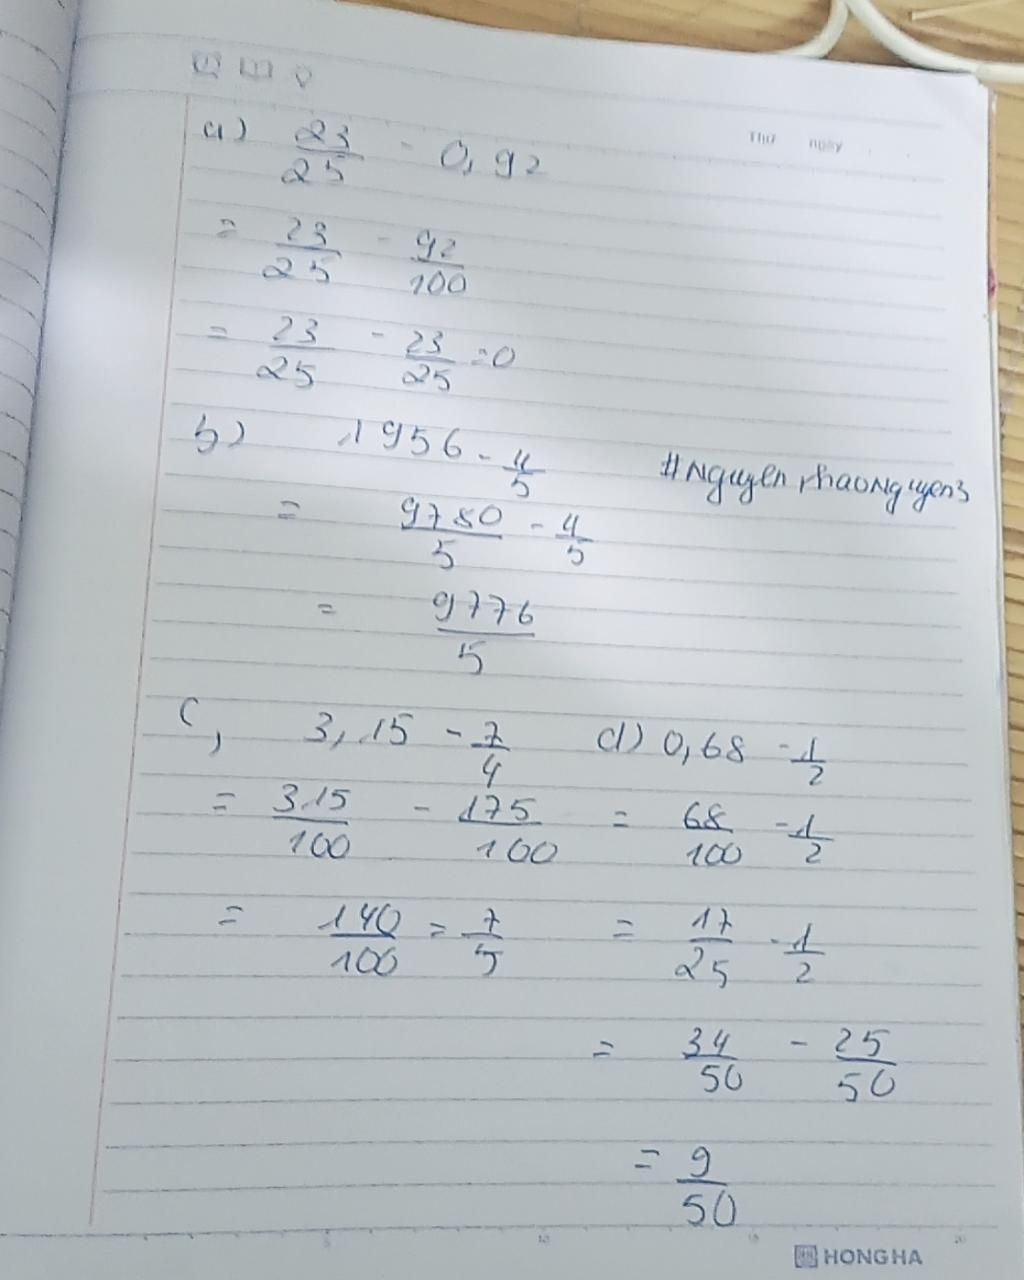 Thứ ngày
a) 23/25 - 0,92
= 23/25 - 92/100
= 23/25 - 23/25 = 0
b) 1956 - 4/5
#NguyenthaoNguyen3
= 9780/5 - 4/5
= 9776/5
c, 3,15 - 7/4
= 315/100 - 175/100
= 140/100 = 7/5
d) 0,68 - 1/2
= 68/100 - 1/2
= 17/25 - 1/2
= 34/50 - 25/50
= 9/50
5 10 15 20
HONG HA